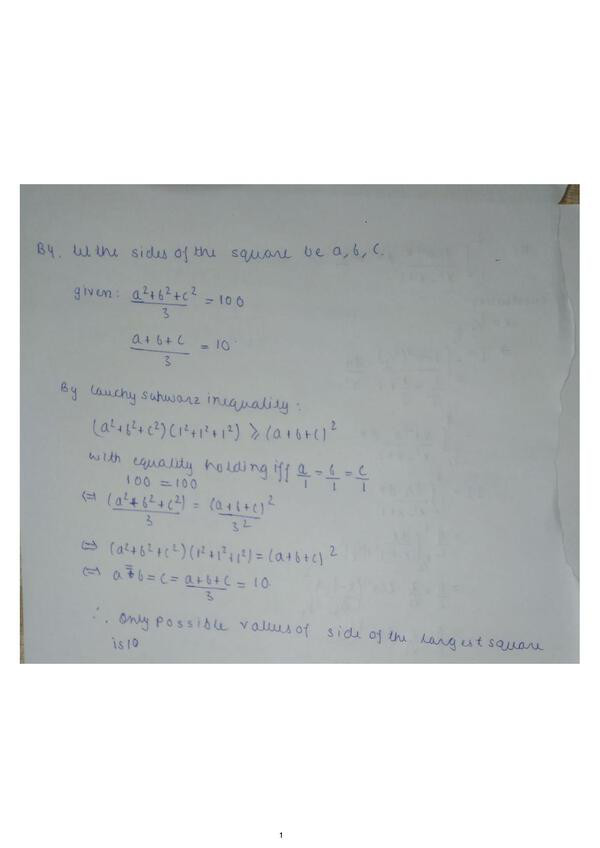 B4. let the sides of the square be a, b, c.
given: (a²+b²+c²)/3 = 100
(a+b+c)/3 = 10
By Cauchy Suhwarz inequality:
(a²+b²+c²)(1²+1²+1²) ≥ (a+b+c)²
with equality holding iff a/1 = b/1 = c/1
100 = 100
⇔ (a²+b²+c²)/3 = (a+b+c)²/3²
⇔ (a²+b²+c²)(1²+1²+1²) = (a+b+c)²
⇔ a=b=c = (a+b+c)/3 = 10
∴ Only possible values of side of the largest square
is 10
1